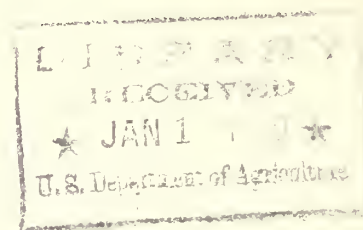 LIBRARY
RECEIVED
★ JAN 1 ★
U.S. Department of Agriculture